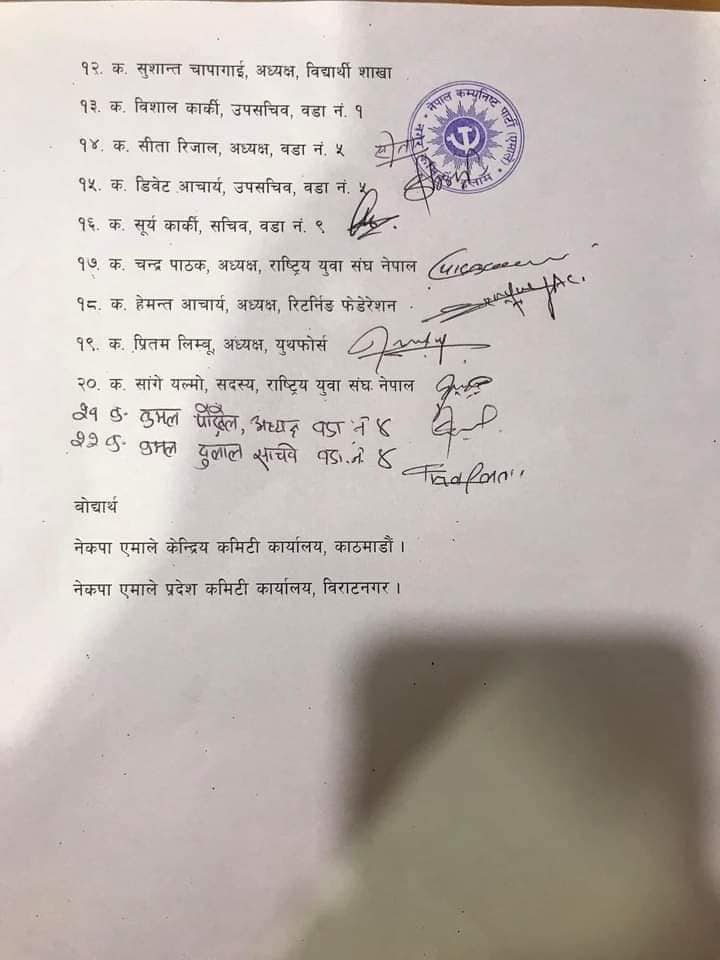 १२. क. सुशान्त चापागाई, अध्यक्ष, विद्यार्थी शाखा
१३. क. विशाल कार्की, उपसचिव, वडा नं. १
नेपाल कम्यूनिष्ट पार्टी (एमाले)
१४. क. सीता रिजाल, अध्यक्ष, वडा नं. ५
१५. क. डिवेट आचार्य, उपसचिव, वडा नं. ५
१६. क. सूर्य कार्की, सचिव, वडा नं. ९
१७. क. चन्द्र पाठक, अध्यक्ष, राष्ट्रिय युवा संघ नेपाल
१८. क. हेमन्त आचार्य, अध्यक्ष, रिटर्निङ फेडेरेशन
१९. क. प्रितम लिम्बू, अध्यक्ष, युथफोर्स
२०. क. सांगे यल्मो, सदस्य, राष्ट्रिय युवा संघ नेपाल
२१ क. पौडेल, अध्यक्ष वडा नं ४
२२ क. दुलाल सचिव वडा. नं ४
वोद्यार्थ
नेकपा एमाले केन्द्रिय कमिटी कार्यालय, काठमाडौं ।
नेकपा एमाले प्रदेश कमिटी कार्यालय, विराटनगर ।